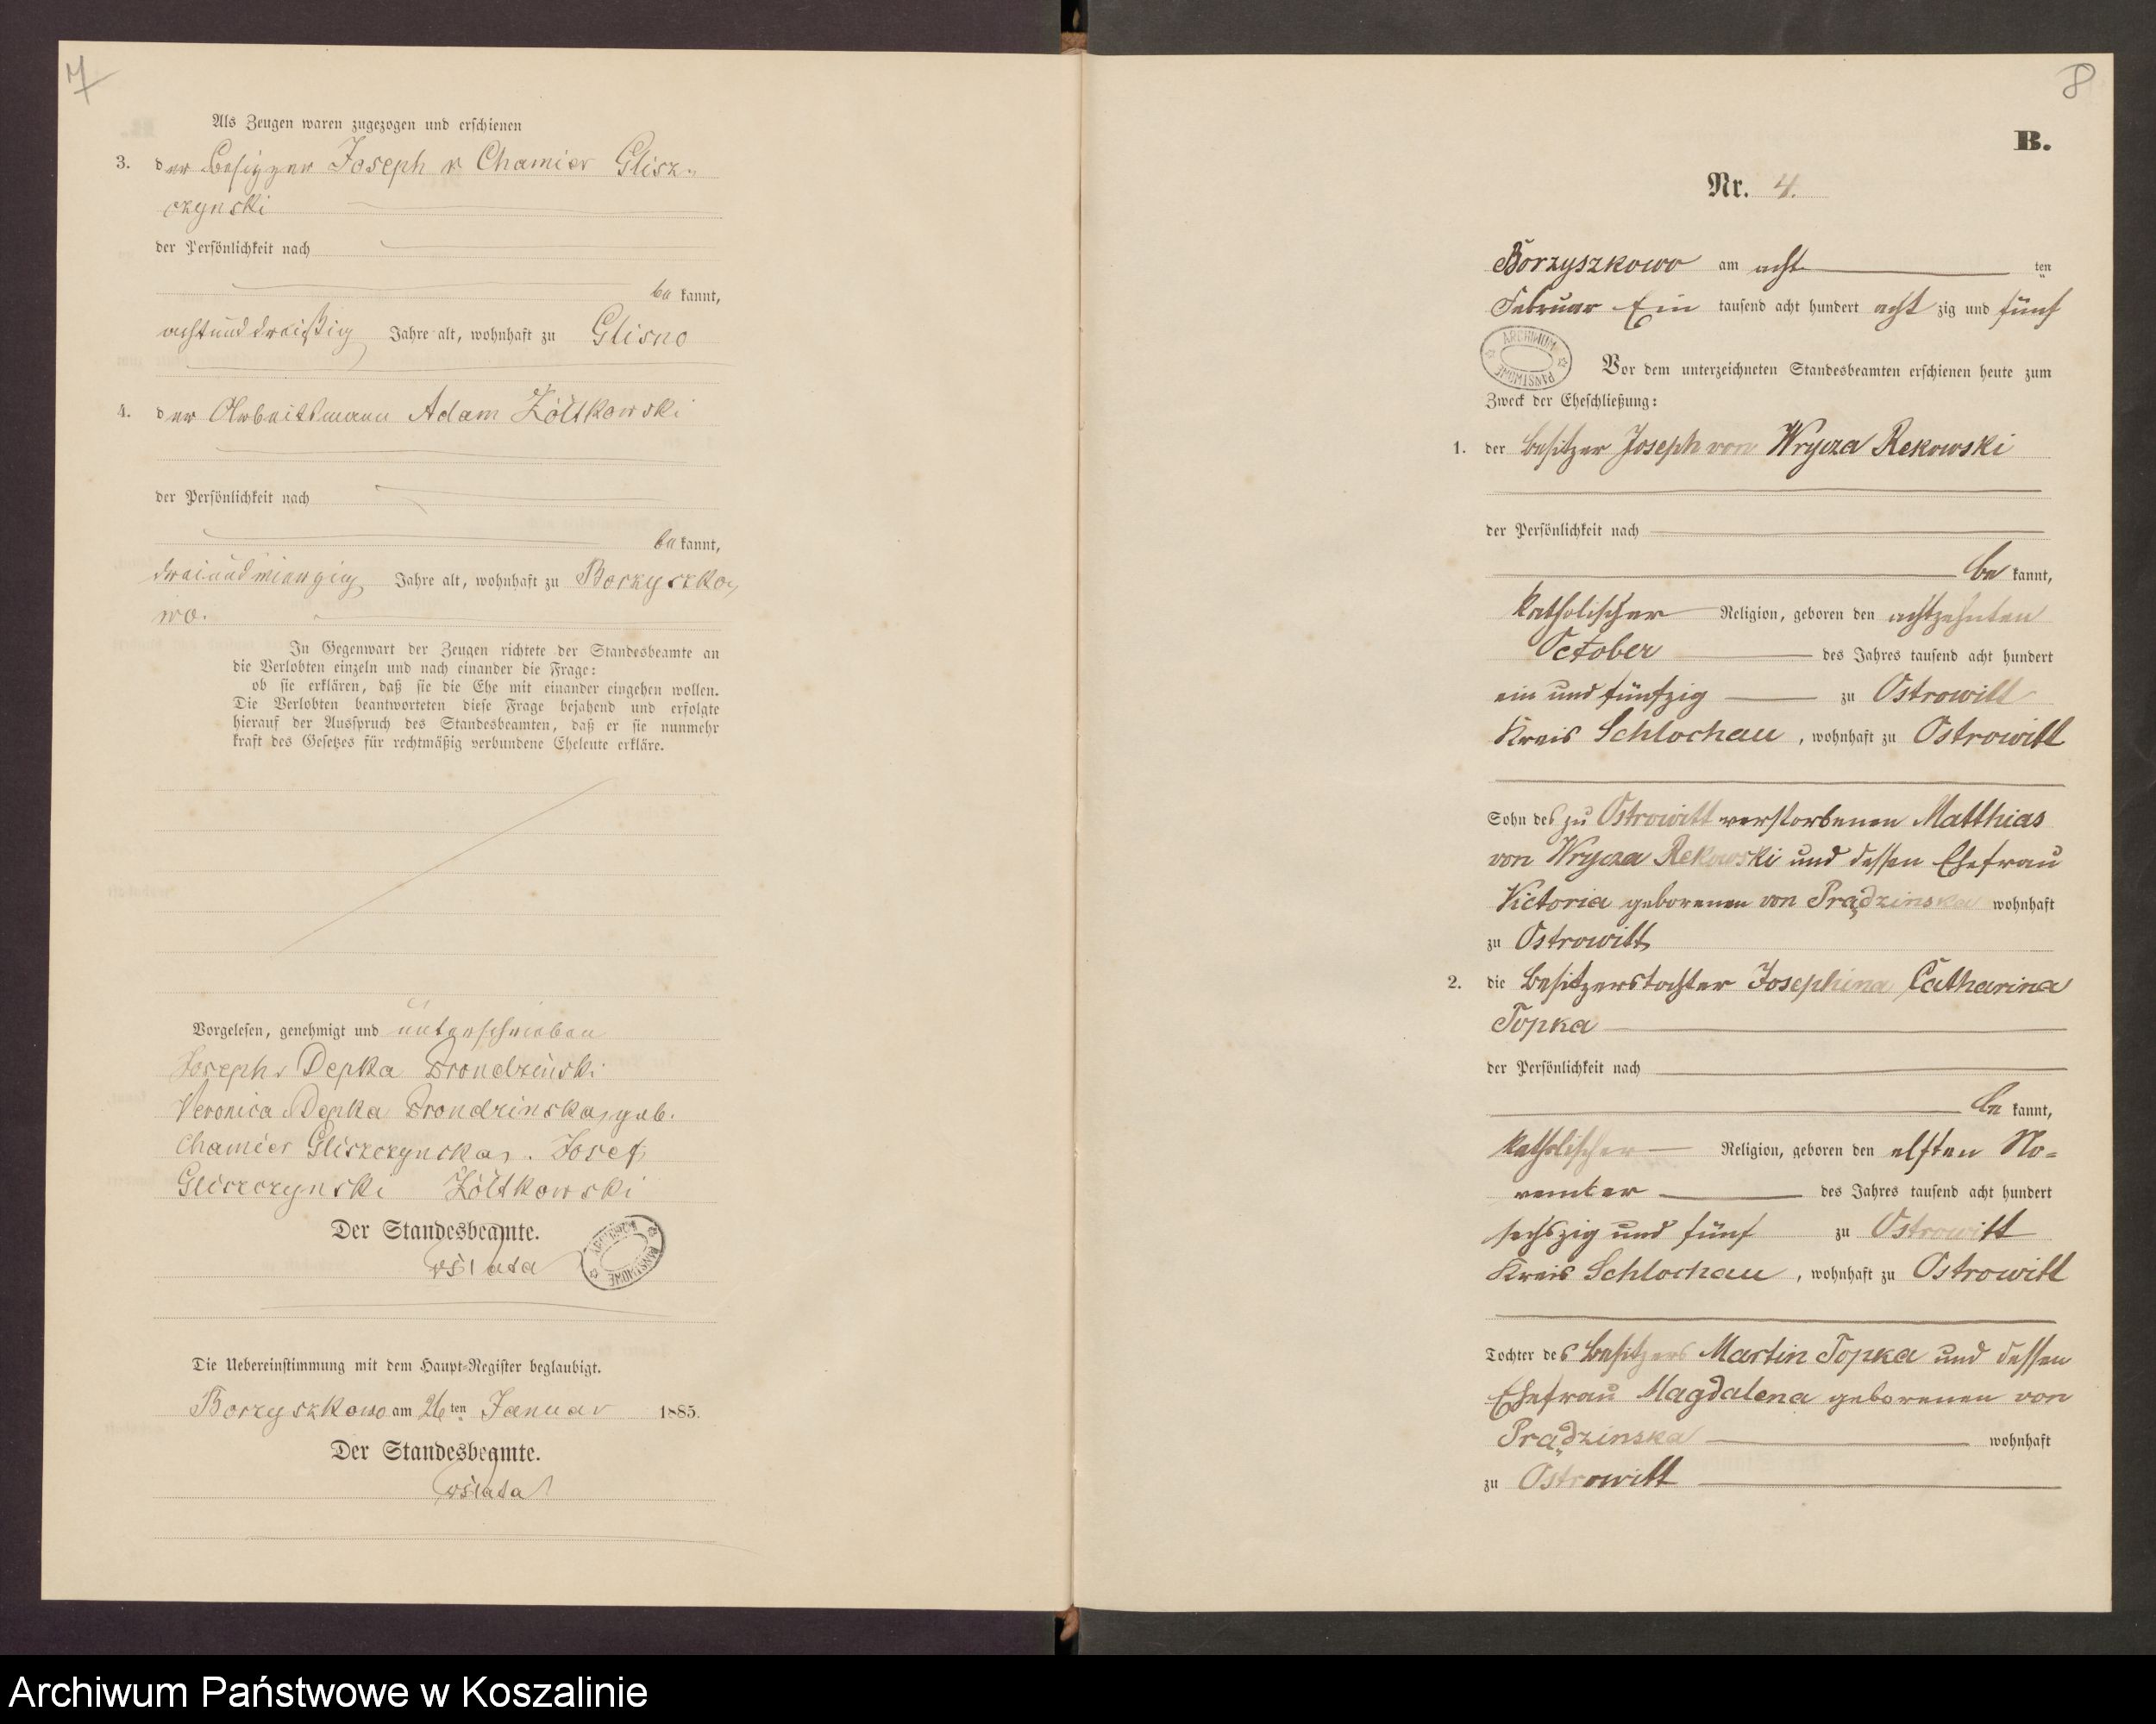 7
Als Zeugen waren zugezogen und erschienen
3. der Besitzer Joseph v Chamier Glisz-
czynski
der Persönlichkeit nach
be kannt,
achtunddreißig Jahre alt, wohnhaft zu Glisno
4. der Arbeitsmann Adam Żółtkowski
der Persönlichkeit nach
be kannt,
dreiundvierzig Jahre alt, wohnhaft zu Borzyszko-
wo.
In Gegenwart der Zeugen richtete der Standesbeamte an
die Verlobten einzeln und nach einander die Frage:
ob sie erklären, daß sie die Ehe mit einander eingehen wollen.
Die Verlobten beantworteten diese Frage bejahend und erfolgte
hierauf der Ausspruch des Standesbeamten, daß er sie nunmehr
kraft des Gesetzes für rechtmäßig verbundene Eheleute erkläre.
Vorgelesen, genehmigt und unterschrieben
Joseph Depka Prondzinski
Veronica Depka Prondzinska, geb.
Chamier Gliszczynska. Josef
Gliszczynski Żółtkowski
Der Standesbeamte.
ARCHIWUM PAŃSTWOWE
Die Uebereinstimmung mit dem Haupt-Register beglaubigt.
Borzyszkowo am 26 ten Januar 1885.
Der Standesbeamte.
8
B.
Nr. 4.
Borzyszkowo am acht ten
Februar Ein tausend acht hundert acht zig und fünf
ARCHIWUM PAŃSTWOWE
Vor dem unterzeichneten Standesbeamten erschienen heute zum
Zweck der Eheschließung:
1. der Besitzer Joseph von Wrycza Rekowski
der Persönlichkeit nach
be kannt,
katholischer Religion, geboren den achtzehnten
October des Jahres tausend acht hundert
ein und fünfzig zu Ostrowitt
Kreis Schlochau, wohnhaft zu Ostrowitt
Sohn des zu Ostrowitt verstorbenen Matthias
von Wrycza Rekowski und dessen Ehefrau
Victoria geborenen von Prądzinska wohnhaft
zu Ostrowitt
2. die Besitzerstochter Josephina Catharina
Topka
der Persönlichkeit nach
be kannt,
katholischer Religion, geboren den elften No-
vember des Jahres tausend acht hundert
sechszig und fünf zu Ostrowitt
Kreis Schlochau, wohnhaft zu Ostrowitt
Tochter des Besitzers Martin Topka und dessen
Ehefrau Magdalena geborenen von
Prądzinska wohnhaft
zu Ostrowitt
Archiwum Państwowe w Koszalinie